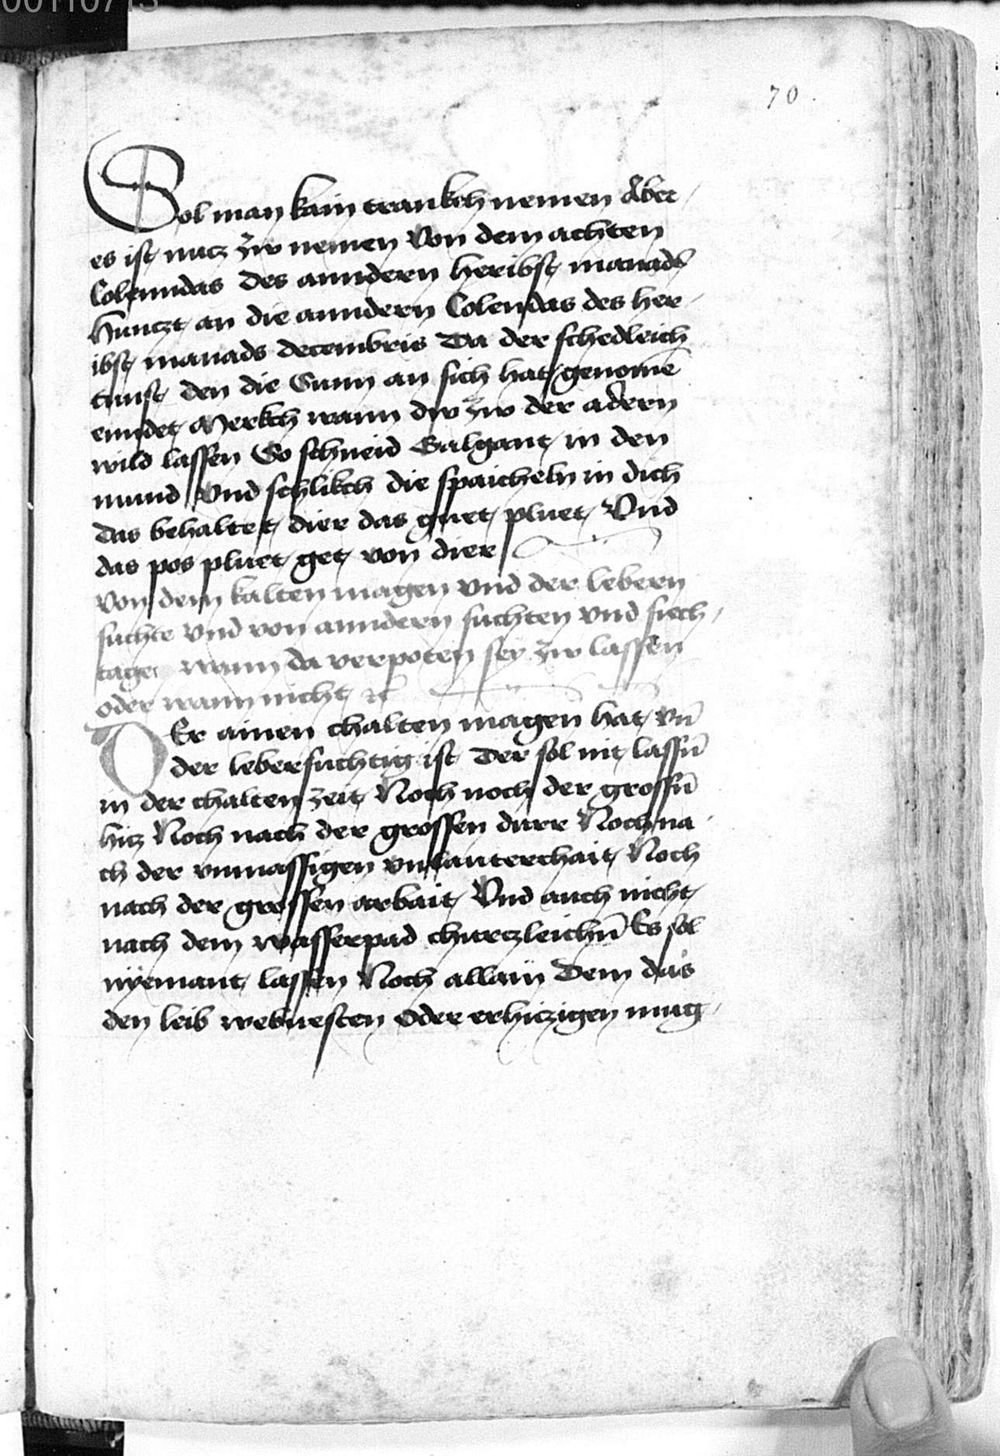 00110713
70.
Sol man kain trankch nemen Aber
es ist nucz zw nemen Von dem achten
Colenndas des anndern heribst manads
Huntzt an die anndern Colendas des her
ibst manads decembris Da der schedleich
tunst den die Sunn an sich hat genomē
enndet Merkch wann dw zw der adern
wild lassen So schneid Galgant in den
mund Vnd schlikch die spaicheln in dich
das behaltet dier das guet pluet Vnd
das pos pluet get von dier
Von dem kalten magen vnd der lebern
suchte vnd von anndern suchten vnd siech
tagen wann da verpoten sey zw lassen
oder wann nicht etc
DEr ainen chalten magen hat vn̄
der lebersuchtig ist Der sol nit lassn̄
in der chalten zeit Noch noch der grossn̄
hitz Noch nach der grossen durr Noch na
ch der vnmassigen vnlauterchait Noch
nach der grossen arbait Vnd auch nicht
nach dem wasserpad churczleichn̄ Es sol
nÿemant lassen Noch allain Dem das
den leib Oder erhiczigen mug